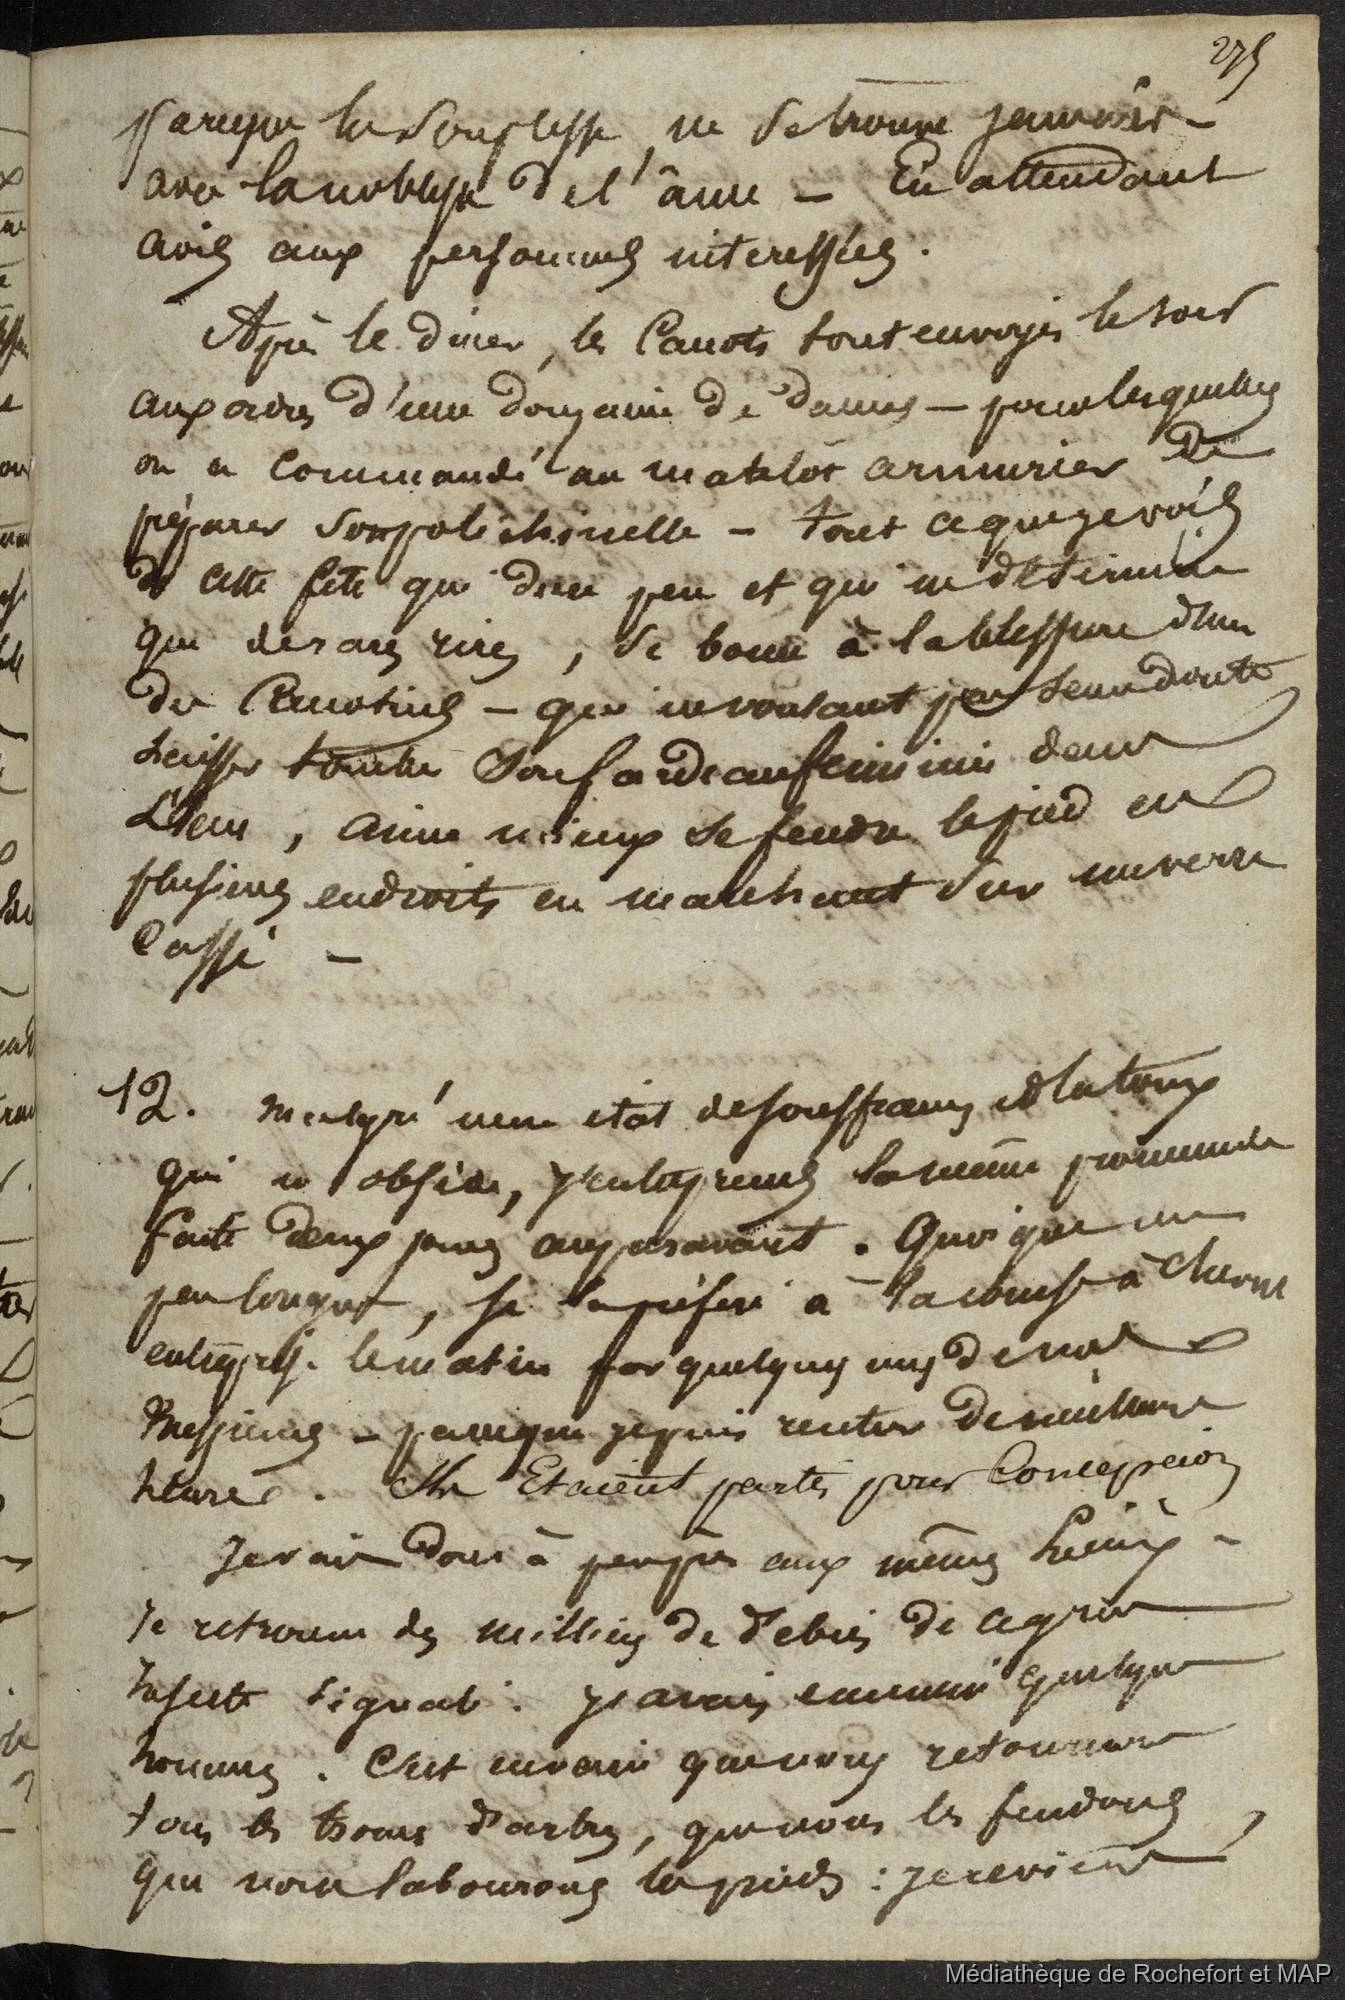 275
parceque la souplesse ne se trouve jamais
avec la noblesse de l'âme — En attendant
avis aux personnes interessées.
Après le diner, les Canots sont envoyés le soir
aux ordres d'une douzaine de dames — pour lesquelles
on a commandé au matelot armurier de
préparer son polichinelle — tout ce que je vois
de cette fête qui dure peu et qui ne détermine
que des arez rires, se borne à la blessure d'un
des Canotiers — qui ne voulant pas sans doute
laisser tomber son fardeau feminin dans
L'eau, aime mieux se fendre le pied en
plusieurs endroits en marchant sur un verre
Cassé —
12. malgré mon état de souffrances et la toux
qui m'obsède, j'entreprends la même promenade
faite deux jours auparavant. Quoique un
peu longue, je la préfère à la course à cheval
entreprise le matin par quelques uns de nos
Messieurs — parceque je puis rentrer de meilleure
heure. Ils Etaient partis pour Concepcion
Je vais donc à peu près aux mêmes lieux —
Je retrouve des milliers de débris de ce gros
Insecte signalé. J'avais emmené quelques
hommes. C'est en vain que nous retournons
tous les troncs d'arbres, que nous les fendons,
que nous labourons les pieds : Je reviens
Médiathèque de Rochefort et MAP